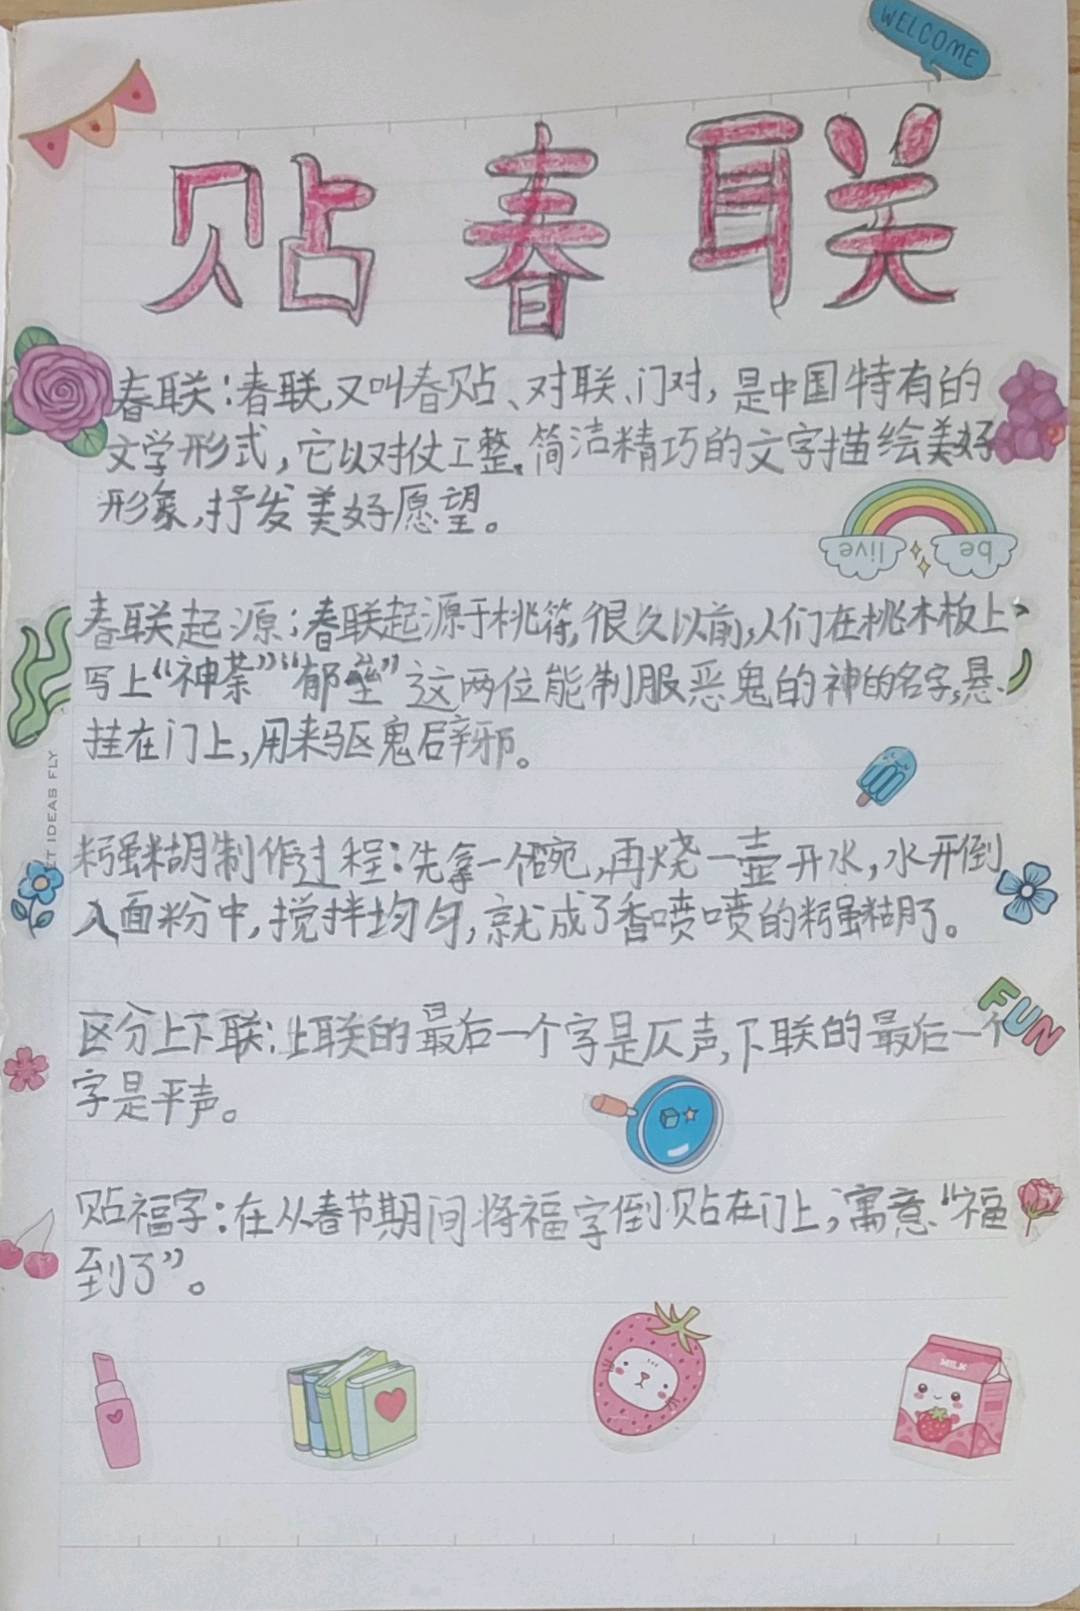 WELCOME
贴春联
春联：春联又叫春贴、对联、门对，是中国特有的
文学形式，它以对仗工整、简洁精巧的文字描绘美好
形象，抒发美好愿望。
be live
春联起源：春联起源于桃符，很久以前，人们在桃木板上
写上“神荼”“郁垒”这两位能制服恶鬼的神的名字，悬
挂在门上，用来驱鬼辟邪。
ET IDEAS FLY
糨糊制作过程：先拿一个碗，再烧一壶开水，水开倒
入面粉中，搅拌均匀，就成了香喷喷的糨糊了。
FUN
区分上下联：上联的最后一个字是仄声，下联的最后一个
字是平声。
贴福字：在从春节期间将福字倒贴在门上，寓意“福
到了”。
MILK